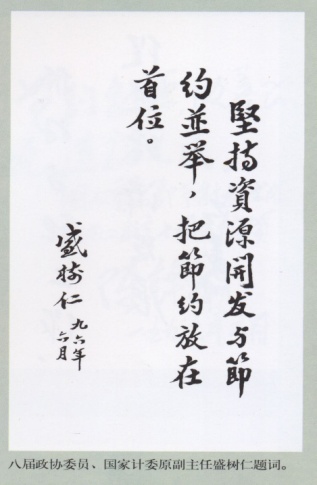 堅持資源開发与節
約並举，把節約放在
首位。
盛树仁 九六年
六月
八届政协委员、国家计委原副主任盛树仁题词。